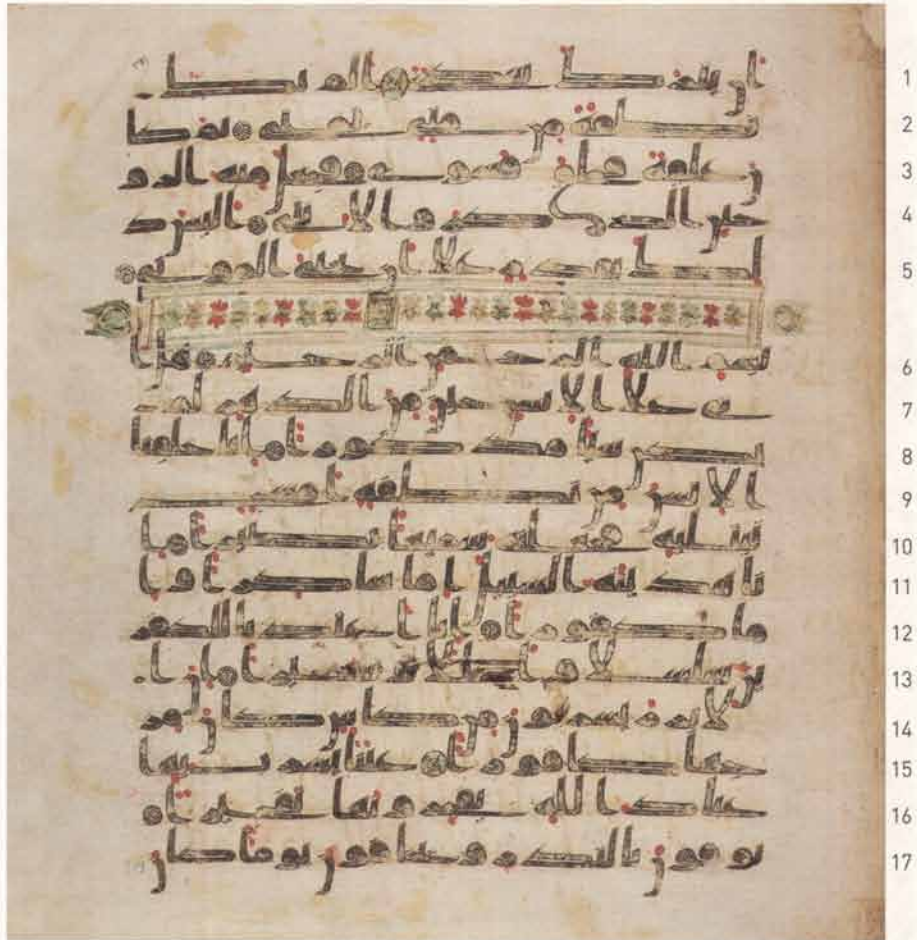 ان يترك سدى الم يك 1
نطفة من منى يمنى ثم كا 2
ن علقة فخلق فسوى فجعل منه الزو 3
جين الذكر والانثى اليس ذ 4
لك بقدر على ان يحيى الموتى 5
بسم الله الرحمن الرحيم هل ا 6
تى على الانسن حين من الدهر لم 7
يكن شيا مذكورا انا خلقنا 8
الانسن من نطفة امشج 9
نبتليه فجعلنه سميعا بصيرا ا 10
نا هدينه السبيل اما شاكرا وا 11
ما كفورا انا اعتدنا للكفر 12
ين سلسلا واغللا وسعيرا ان ا 13
لابرر يشربون من كاس كان مز 14
جها كافورا عينا يشرب بها 15
عباد الله يفجرونها تفجيرا 16
يوفون بالنذر ويخافون يوما كان 17